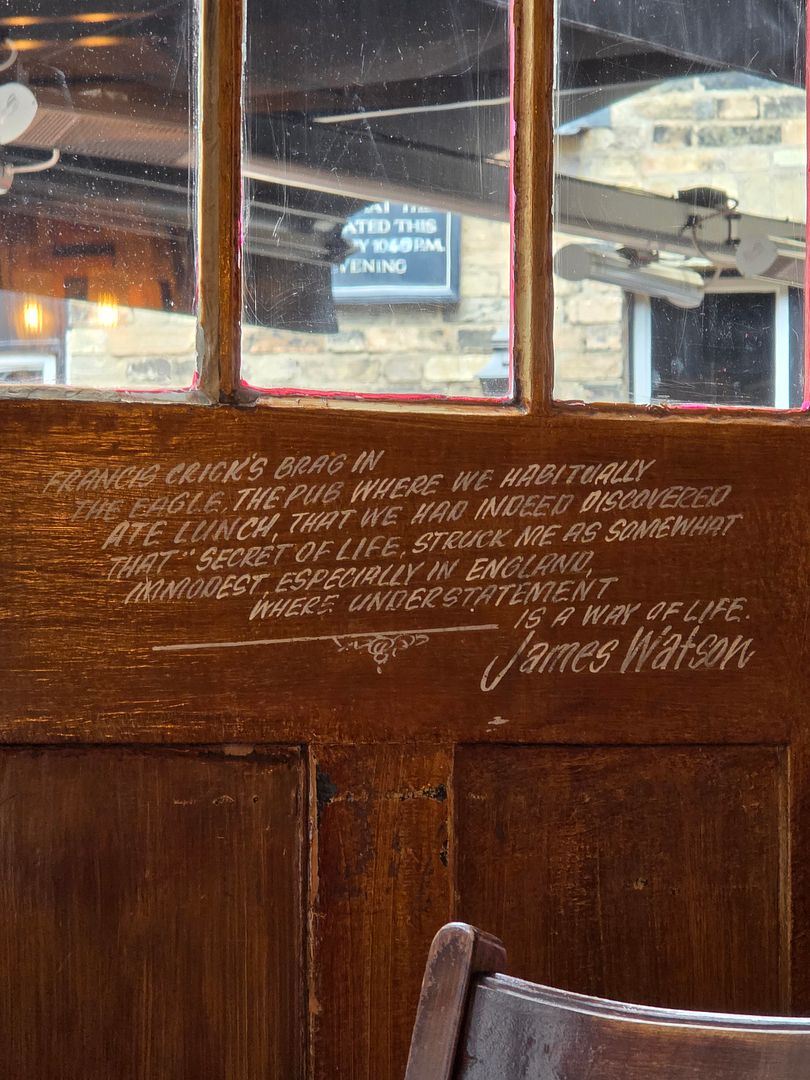 AT THE
ATED THIS
BY 10.45 P.M.
VENING
FRANCIS CRICK'S BRAG IN
THE EAGLE, THE PUB WHERE WE HABITUALLY
ATE LUNCH, THAT WE HAD INDEED DISCOVERED
THAT "SECRET OF LIFE, STRUCK ME AS SOMEWHAT
IMMODEST, ESPECIALLY IN ENGLAND,
WHERE UNDERSTATEMENT
IS A WAY OF LIFE.
James Watson